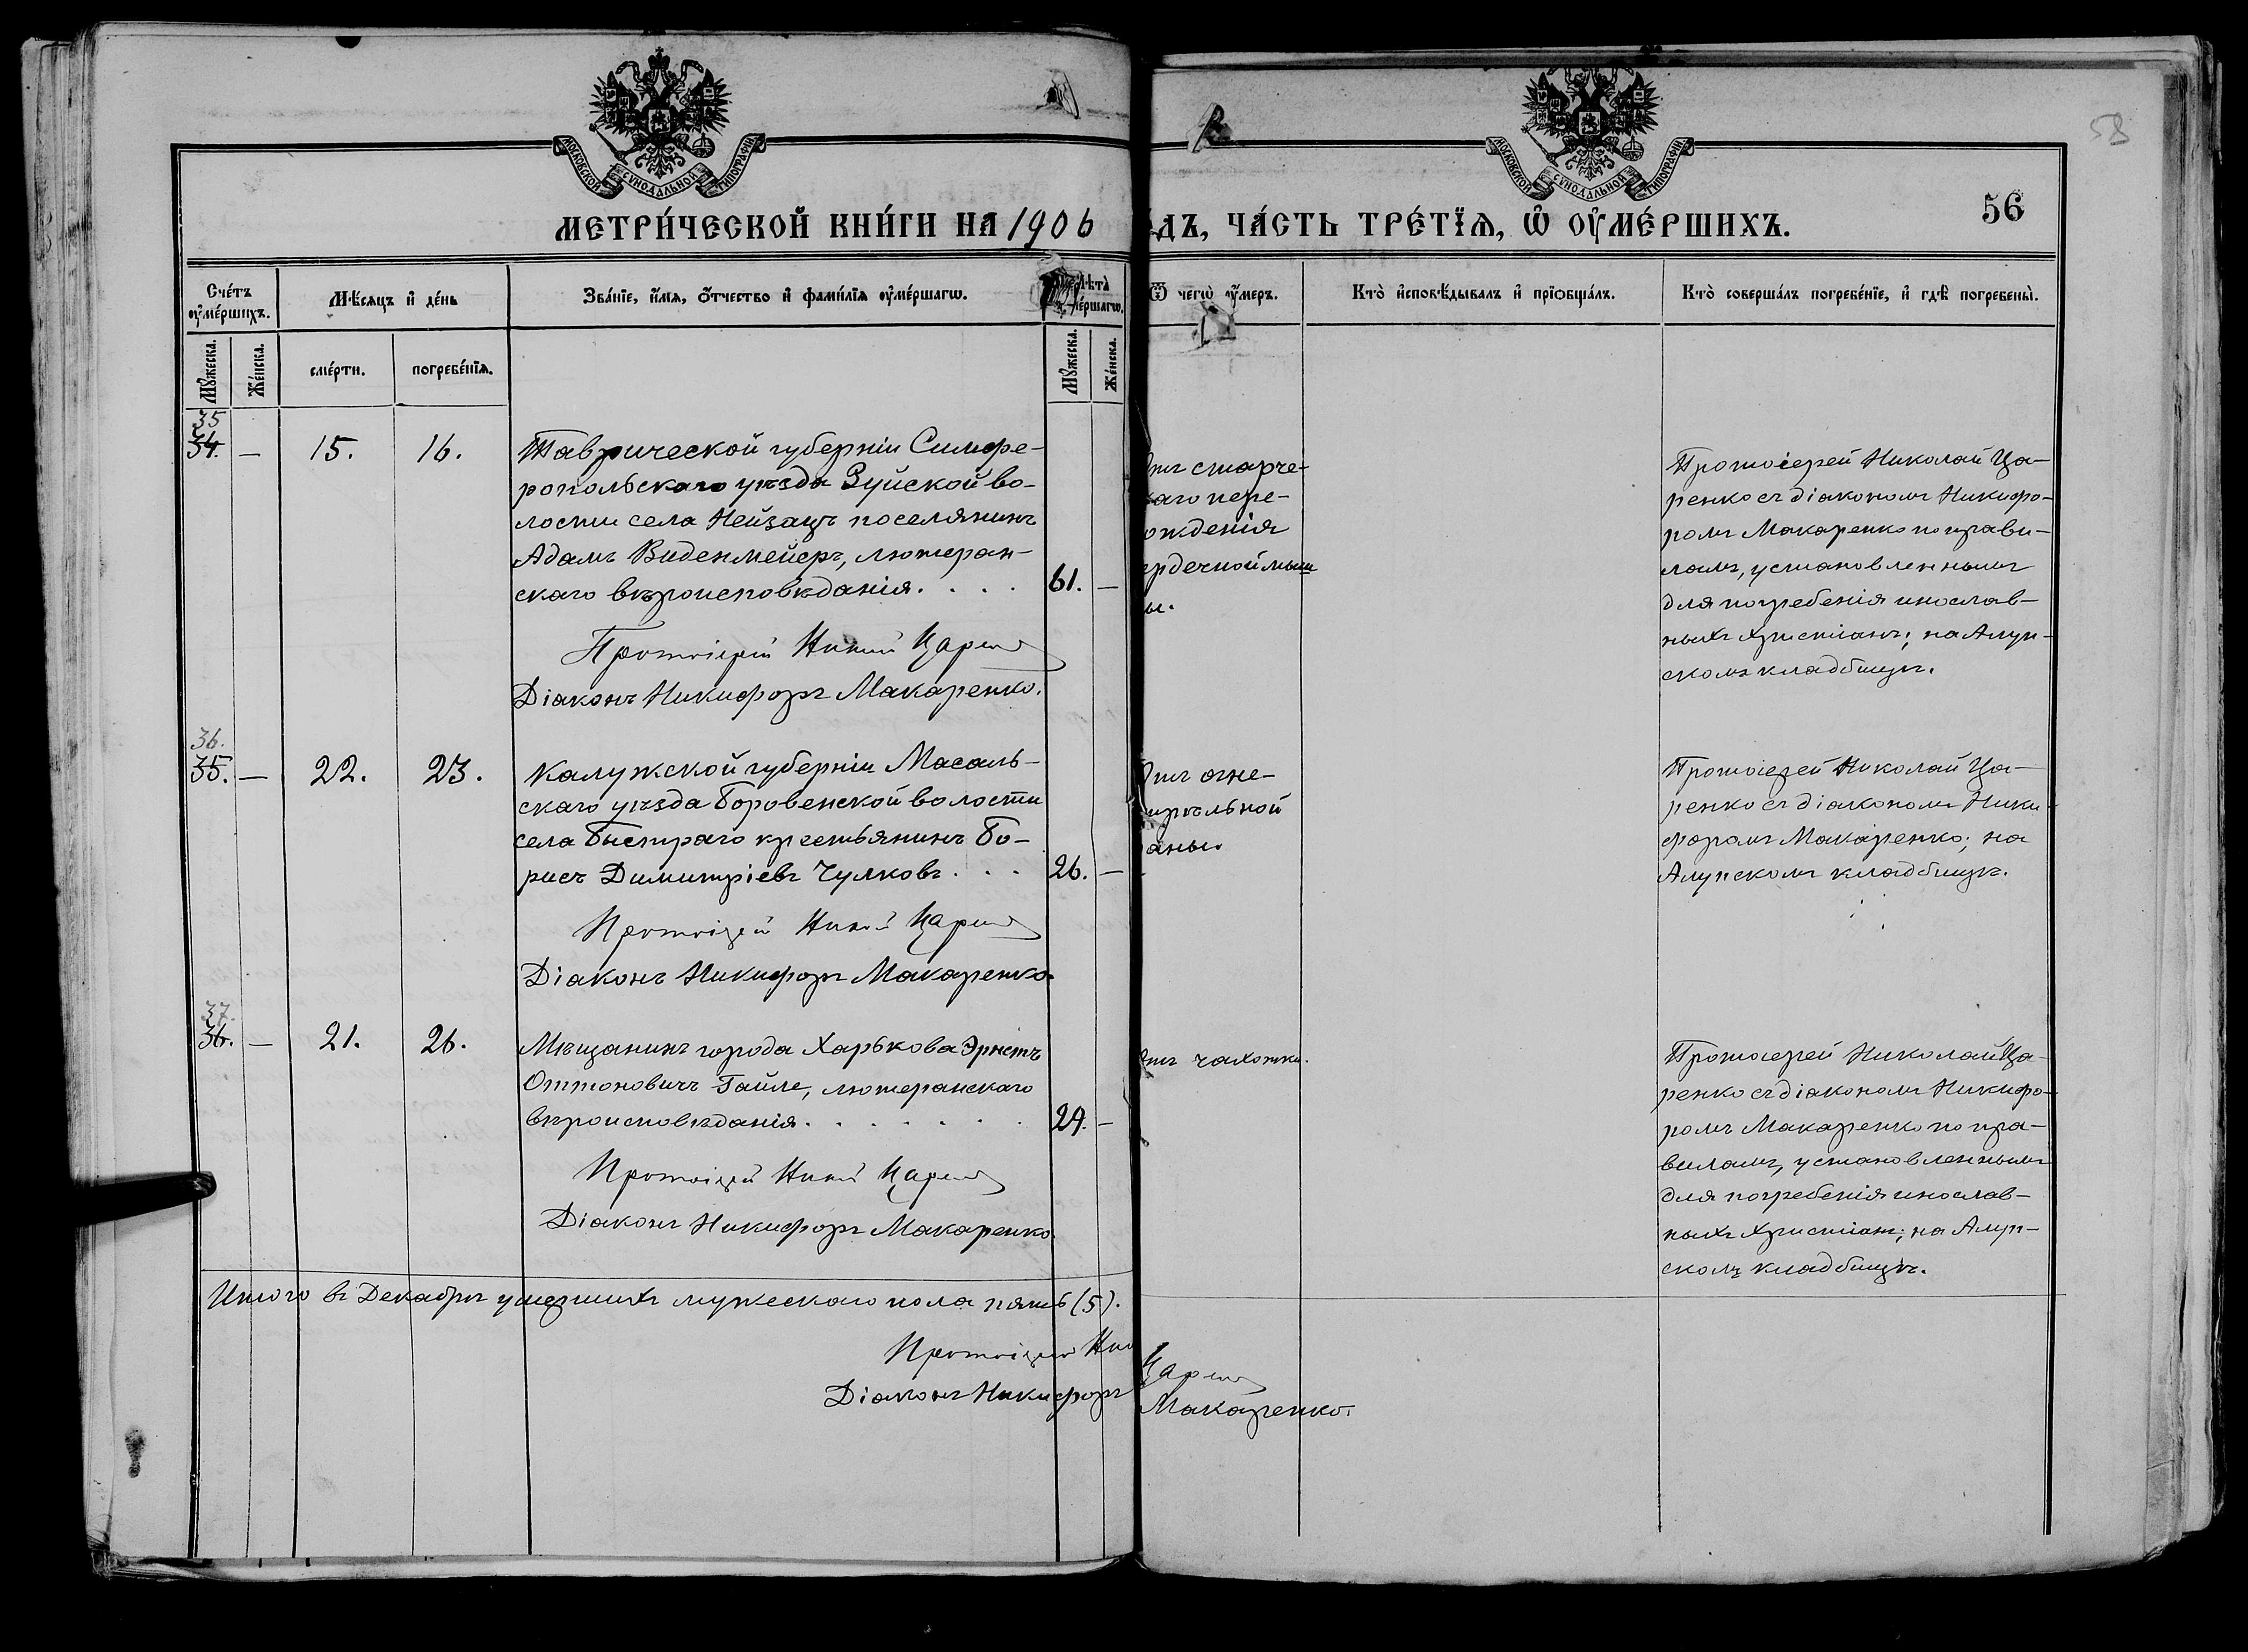 МОСКОВСКОЙ СУНОДАЛЬНОЙ ТИПОГРАФІИ
МОСКОВСКОЙ СУНОДАЛЬНОЙ ТИПОГРАФІИ
58
56
МЕТРИ́ЧЕСКОЙ КНИ́ГИ НА 1906
ДЪ, ЧА́СТЬ ТРЕ́ТЇѦ, Ѡ ОУМЕ́РШИХЪ.
Сче́тъ оумершихъ.
Мѣсяцъ и де́нь
Зва́нїе, и́мя, о́тчество и фами́лїя оуме́ршагѡ.
Лѣта
мершагѡ.
Ѿ чегѡ̀ оу́меръ.
Кто̀ исповѣдывалъ и прїѡбща́лъ.
Кто̀ соверша́лъ погребе́нїе, и гдѣ погребены̀.
Му́жеска.
Же́нска.
сме́рти.
погребе́нїя.
Му́жеска.
Же́нска.
35
34. — 15. 16.
Таврической губерніи Симфе-
ропольскаго уѣзда Зуйской во-
лости села Нейзацъ поселянинъ
Адамъ Виденмейеръ, лютеран-
скаго вѣроисповѣданія. . . . 61. —
Протоіерей Никол Царен
Діаконъ Никифоръ Макаренко.
Отъ старче-
каго пере-
ожденія
ердечной мыш
цы.
Протоіерей Николай Ца-
ренко съ діакономъ Никифо-
ромъ Макаренко по прави-
ламъ, установленнымъ
для погребенія инослав-
ныхъ христіанъ; на Алуп-
скомъ кладбищѣ.
36.
35. — 22. 23.
Калужской губерніи Масаль-
скаго уѣзда Боровенской волости
села Быстраго крестьянинъ Бо-
рисъ Димитріевъ Чулковъ. . . 26. —
Протоіерей Никол Царен
Діаконъ Никифоръ Макаренко.
Отъ огне-
стрѣльной
раны.
Протоіерей Николай Ца-
ренко съ діакономъ Ники-
форомъ Макаренко; на
Алупскомъ кладбищѣ.
37.
36. — 21. 26.
Мѣщанинъ города Харькова Эрнстъ
Оттоновичъ Гайле, лютеранскаго
вѣроисповѣданія. . . . . . . 29. —
Протоіерей Никол Царен
Діаконъ Никифоръ Макаренко.
Отъ чахотки.
Протоіерей Николай Ца-
ренко съ діакономъ Никифо-
ромъ Макаренко по пра-
виламъ, установленнымъ
для погребенія инослав-
ныхъ христіанъ; на Алуп-
скомъ кладбищѣ.
Итого въ Декабрѣ умершихъ мужескаго пола пять (5).
Протоіерей Ник Царен
Діаконъ Никифоръ Макаренко.